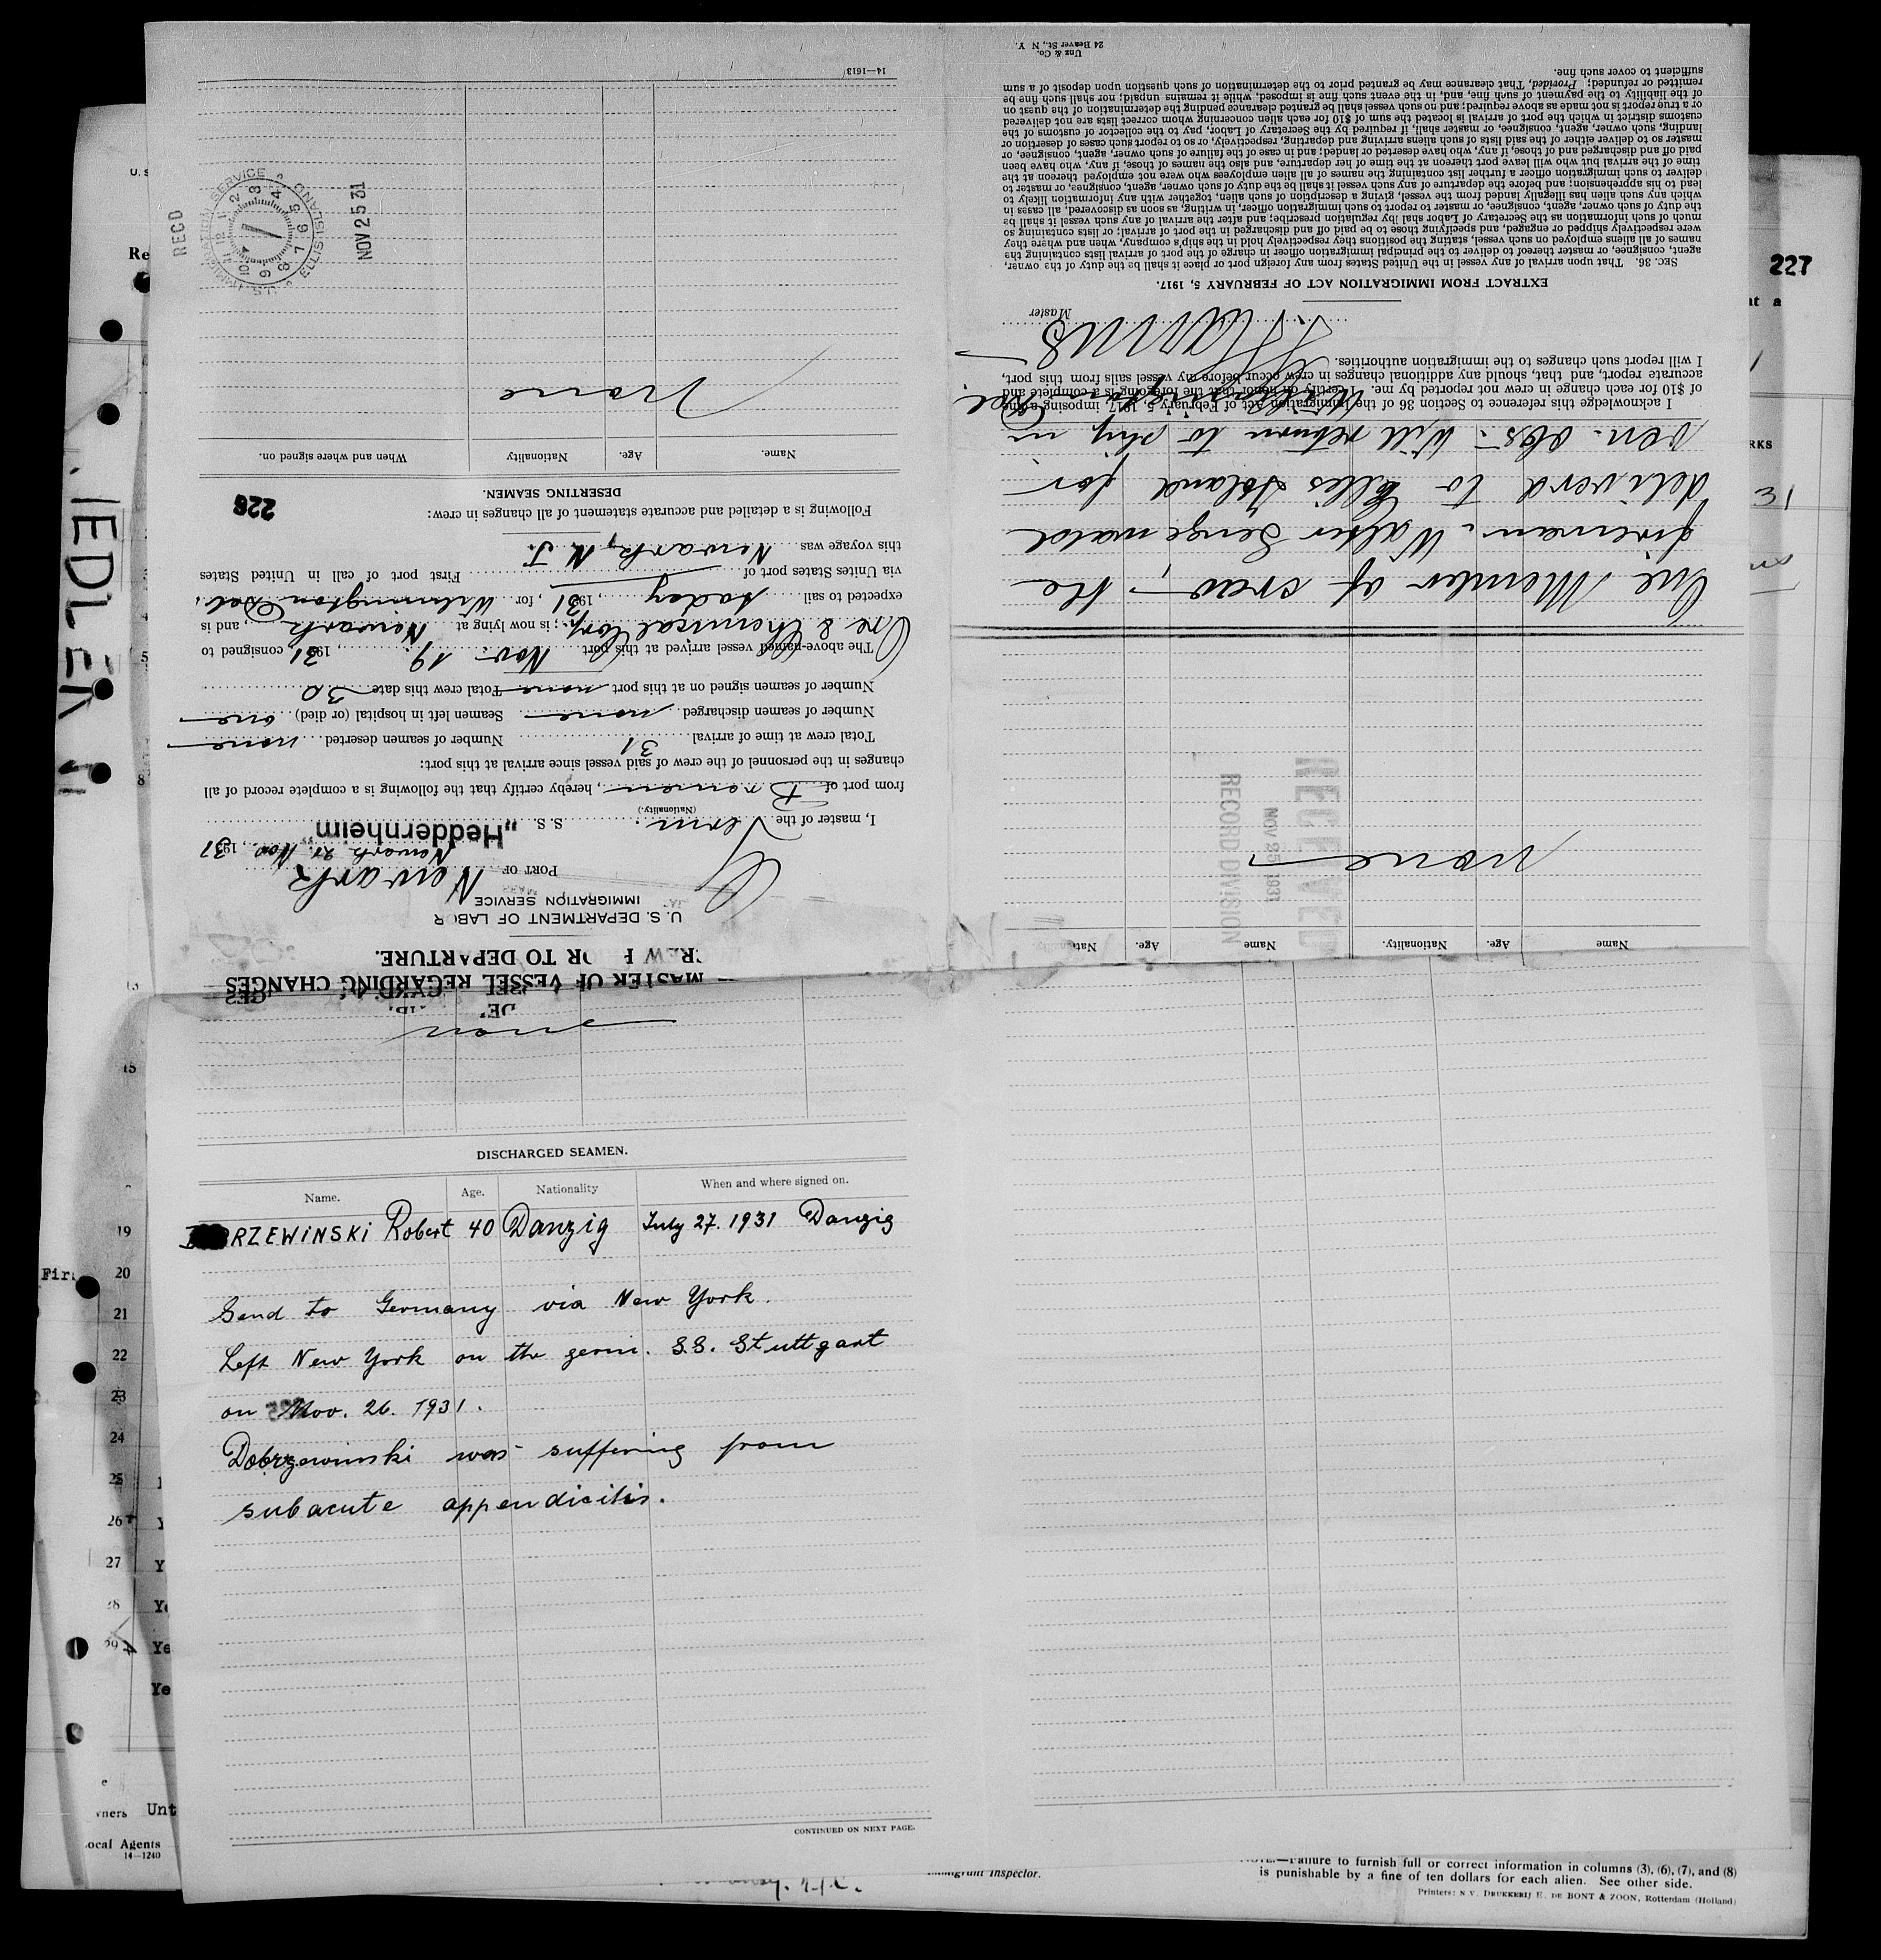 MASTER OF VESSEL REGARDING CHANGES
OR TO DEPARTURE.
U. S. DEPARTMENT OF LABOR
IMMIGRATION SERVICE
PORT OF Newark
Newark 21. Nov. 1931
I, master of the Germ. S. S. „Heddernheim"
(Nationality.)
from port of Bremen, hereby certify that the following is a complete record of all
changes in the personnel of the crew of said vessel since arrival at this port:
Total crew at time of arrival 31 Number of seamen deserted none
Number of seamen discharged none Seamen left in hospital (or died) one
Number of seamen signed on at this port none Total crew this date 30
The above-named vessel arrived at this port Nov. 19, 1931, consigned to
Ore & Chemical Corp.; is now lying at Newark, and is
expected to sail today, 1931, for Wilmington Del.
via Unites States port of First port of call in United States
this voyage was Newark, N. J.
Following is a detailed and accurate statement of all changes in crew:
226
DESERTING SEAMEN.
Name. Age. Nationality When and where signed on.
None
REC'D
U.S. IMMIGRATION SERVICE ELLIS ISLAND
NOV 25 31
14—1613
Name Age. Nationality. Name Age. Nationality.
none
RECEIVED
NOV 25 1931
RECORD DIVISION
One Member of crew, the
fireman Walter Lengewald
deliverd to Ellis Island for
Will return to ship in
Wilmington Del.
I acknowledge this reference to Section 36 of the Immigration Act of February 5, 1917, imposing a fine
of $10 for each change in crew not reported by me. I certify on honor that the foregoing is a complete and
accurate report, and that, should any additional changes in crew occur before my vessel sails from this port,
I will report such changes to the immigration authorities.
Master
EXTRACT FROM IMMIGRATION ACT OF FEBRUARY 5, 1917.
SEC. 36. That upon arrival of any vessel in the United States from any foreign port or place it shall be the duty of the owner,
agent, consignee, or master thereof to deliver to the principal immigration officer in charge of the port of arrival lists containing the
names of all aliens employed on such vessel, stating the positions they respectively hold in the ship's company, when and where they
were respectively shipped or engaged, and specifying those to be paid off and discharged in the port of arrival; or lists containing so
much of such information as the Secretary of Labor shall by regulation prescribe; and after the arrival of any such vessel it shall be
the duty of such owner, agent, consignee, or master to report to such immigration officer, in writing, as soon as discovered, all cases in
which any such alien has illegally landed from the vessel, giving a description of such alien, together with any information likely to
lead to his apprehension; and before the departure of any such vessel it shall be the duty of such owner, agent, consignee, or master to
deliver to such immigration officer a further list containing the names of all alien employees who were not employed thereon at the
time of the arrival but who will leave port thereon at the time of her departure, and also the names of those, if any, who have been
paid off and discharged and of those, if any, who have deserted or landed; and in case of the failure of such owner, agent, consignee, or
master so to deliver either of the said lists of such aliens arriving and departing, respectively, or so to report such cases of desertion or
landing, such owner, agent, consignee, or master shall, if required by the Secretary of Labor, pay to the collector of customs of the
customs district in which the port of arrival is located the sum of $10 for each alien concerning whom correct lists are not delivered
or a true report is not made as above required; and no such vessel shall be granted clearance pending the determination of the quest on
of the liability to the payment of such fine, and, in the event such fine is imposed, while it remains unpaid; nor shall such fine be
remitted or refunded; Provided, That clearance may be granted prior to the determination of such question upon deposit of a sum
sufficient to cover such fine.
Unz & Co.
24 Beaver St., N Y.
227
none
DISCHARGED SEAMEN.
Name. Age. Nationality When and where signed on.
RZEWINSKI Robert 40 Danzig July 27. 1931 Danzig
Send to Germany via New York.
Left New York on the germ. S.S. Stuttgart
on Nov. 26. 1931.
Dobrzewinski was suffering from
subacute appendicitis.
CONTINUED ON NEXT PAGE.
15
19
20
21
22
23
24
25
26
27
28
29
Local Agents
14—1240
Immigrant Inspector.
NOTE.—Failure to furnish full or correct information in columns (3), (6), (7), and (8)
is punishable by a fine of ten dollars for each alien. See other side.
Printers: N V. DRUKKERIJ E. DE BONT & ZOON, Rotterdam (Holland)